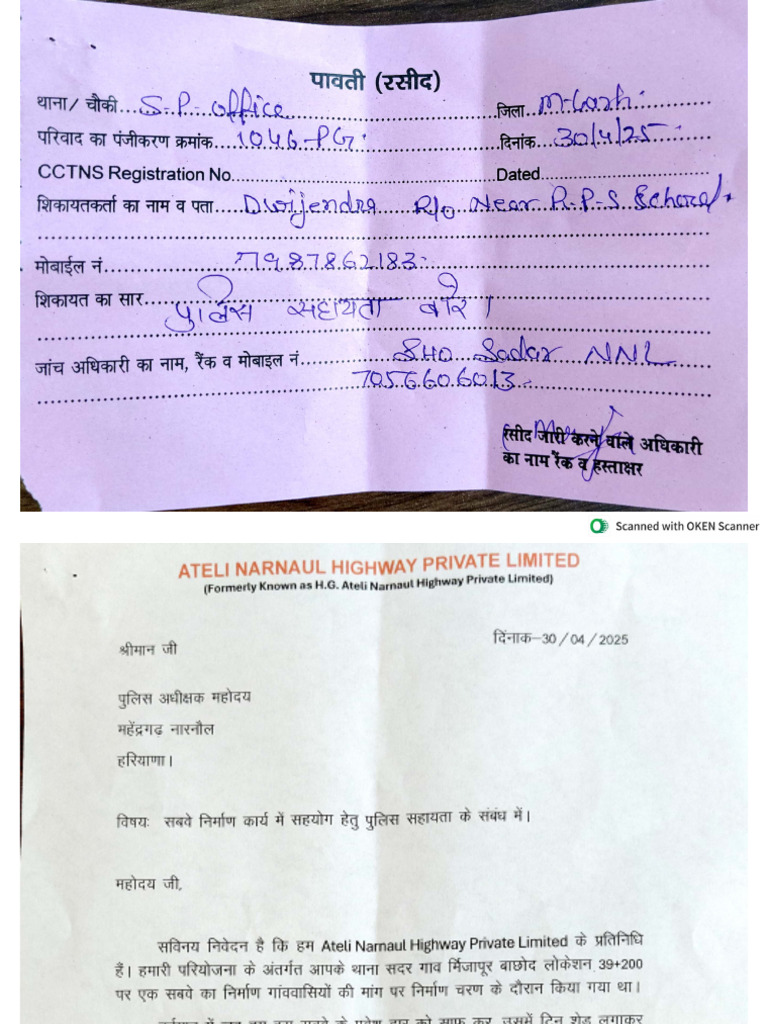 पावती (रसीद)
थाना/ चौकी...S.P. office जिला...M.Garh
परिवाद का पंजीकरण क्रमांक...1046-PG दिनांक...30/4/25
CCTNS Registration No. Dated
शिकायतकर्ता का नाम व पता...Dwijendra R/o Near R.P.S School
मोबाईल नं...7987862183
शिकायत का सार...पुलिस सहायता बारे।
जांच अधिकारी का नाम, रैंक व मोबाइल नं...SHO Sadar NNL
7056606013
रसीद जारी करने वाले अधिकारी
का नाम रैंक व हस्ताक्षर
Scanned with OKEN Scanner
ATELI NARNAUL HIGHWAY PRIVATE LIMITED
(Formerly Known as H.G. Ateli Narnaul Highway Private Limited)
दिंनाक–30/04/2025
श्रीमान जी
पुलिस अधीक्षक महोदय
महेंद्रगढ़ नारनौल
हरियाणा।
विषयः सबवे निर्माण कार्य में सहयोग हेतु पुलिस सहायता के संबंध में।
महोदय जी,
सविनय निवेदन है कि हम Ateli Narnaul Highway Private Limited के प्रतिनिधि
हैं। हमारी परियोजना के अंतर्गत आपके थाना सदर गाव र्मिजापूर बाछोद लोकेशन 39+200
पर एक सबवे का निर्माण गांववासियों की मांग पर निर्माण चरण के दौरान किया गया था।
को साफ कर, उसमें टिन शेड लगाकर